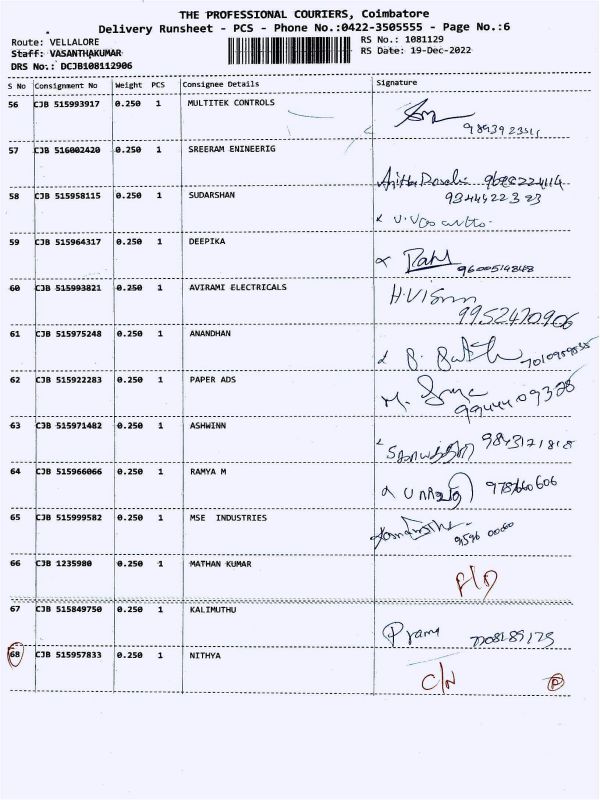 THE PROFESSIONAL COURIERS, Coimbatore
Delivery Runsheet - PCS - Phone No.:0422-3505555 - Page No.:6
Route: VELLALORE
RS No.: 1081129
Staff: VASANTHAKUMAR
RS Date: 19-Dec-2022
DRS No.: DCJB108112906
S No Consignment No Weight PCS Consignee Details Signature
56 CJB 515993917 0.250 1 MULTITEK CONTROLS
57 CJB 516002420 0.250 1 SREERAM ENINEERIG
58 CJB 515958115 0.250 1 SUDARSHAN
9344422323
59 CJB 515964317 0.250 1 DEEPIKA
9600514848
60 CJB 515993821 0.250 1 AVIRAMI ELECTRICALS
9952470906
61 CJB 515975248 0.250 1 ANANDHAN
62 CJB 515922283 0.250 1 PAPER ADS
9944409328
63 CJB 515971482 0.250 1 ASHWINN 9843121818
64 CJB 515966066 0.250 1 RAMYA M
65 CJB 515999582 0.250 1 MSE INDUSTRIES
66 CJB 1235980 0.250 1 MATHAN KUMAR
67 CJB 515849750 0.250 1 KALIMUTHU
68 CJB 515957833 0.250 1 NITHYA
C/N P